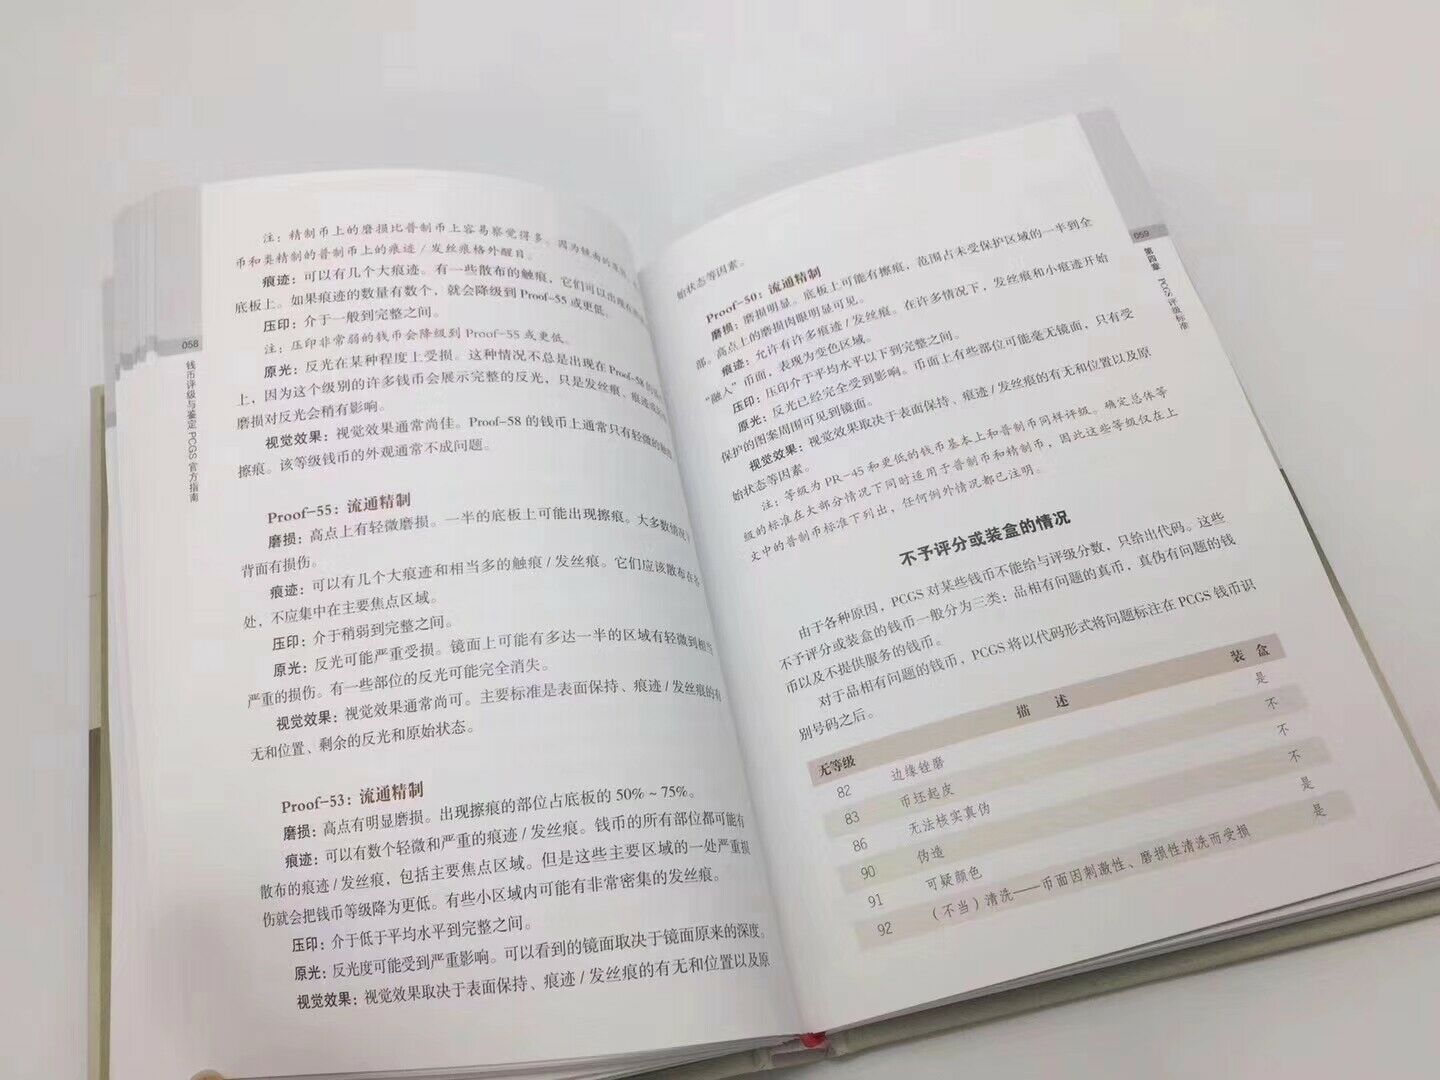 058
钱币评级与鉴定 PCGS 官方指南
注：精制币上的磨损比普制币上容易察觉得多，因为镜面的
币和类精制的普制币上的痕迹/发丝痕格外醒目。
痕迹：可以有几个大痕迹。有一些散布的触痕，它们可以出现在
底板上。如果痕迹的数量有数个，就会降级到 Proof-55 或更低。
压印：介于一般到完整之间。
注：压印非常弱的钱币会降级到 Proof-55 或更低。
原光：反光在某种程度上受损。这种情况不总是出现在 Proof-58 的
上，因为这个级别的许多钱币会展示完整的反光，只是发丝痕、痕迹或
磨损对反光会稍有影响。
视觉效果：视觉效果通常尚佳。Proof-58 的钱币上通常只有轻微的
擦痕。该等级钱币的外观通常不成问题。
Proof-55：流通精制
磨损：高点上有轻微磨损。一半的底板上可能出现擦痕。大多数情况下
背面有损伤。
痕迹：可以有几个大痕迹和相当多的触痕/发丝痕。它们应该散布在各
处，不应集中在主要焦点区域。
压印：介于稍弱到完整之间。
原光：反光可能严重受损。镜面上可能有多达一半的区域有轻微到相当
严重的损伤。有一些部位的反光可能完全消失。
视觉效果：视觉效果通常尚可。主要标准是表面保持、痕迹/发丝痕的有
无和位置、剩余的反光和原始状态。
Proof-53：流通精制
磨损：高点有明显磨损。出现擦痕的部位占底板的 50%~75%。
痕迹：可以有数个轻微和严重的痕迹/发丝痕。钱币的所有部位都可能有
散布的痕迹/发丝痕，包括主要焦点区域。但是这些主要区域的一处严重损
伤就会把钱币等级降为更低。有些小区域内可能有非常密集的发丝痕。
压印：介于低于平均水平到完整之间。
原光：反光度可能受到严重影响。可以看到的镜面取决于镜面原来的深度。
视觉效果：视觉效果取决于表面保持、痕迹/发丝痕的有无和位置以及原
059
第四章 PCGS 评级标准
始状态等因素。
Proof-50：流通精制
磨损：磨损明显。底板上可能有擦痕，范围占未受保护区域的一半到全
部。高点上的磨损肉眼明显可见。
痕迹：允许有许多痕迹/发丝痕。在许多情况下，发丝痕和小痕迹开始
“融入”币面，表现为变色区域。
压印：压印介于平均水平以下到完整之间。
原光：反光已经完全受到影响。币面上有些部位可能毫无镜面，只有受
保护的图案周围可见到镜面。
视觉效果：视觉效果取决于表面保持、痕迹/发丝痕的有无和位置以及原
始状态等因素。
注：等级为 PR-45 和更低的钱币基本上和普制币同样评级。确定总体等
级的标准在大部分情况下同时适用于普制币和精制币，因此这些等级仅在上
文中的普制币标准下列出，任何例外情况都已注明。
不予评分或装盒的情况
由于各种原因，PCGS 对某些钱币不能给与评级分数，只给出代码。这些
不予评分或装盒的钱币一般分为三类：品相有问题的真币，真伪有问题的钱
币以及不提供服务的钱币。
对于品相有问题的钱币，PCGS 将以代码形式将问题标注在 PCGS 钱币识
别号码之后。
无等级 描 述 装 盒
82 边缘锉磨 是
83 币坯起皮 不
86 无法核实真伪 不
90 伪造 不
91 可疑颜色 是
92 （不当）清洗——币面因刺激性、磨损性清洗而受损 是